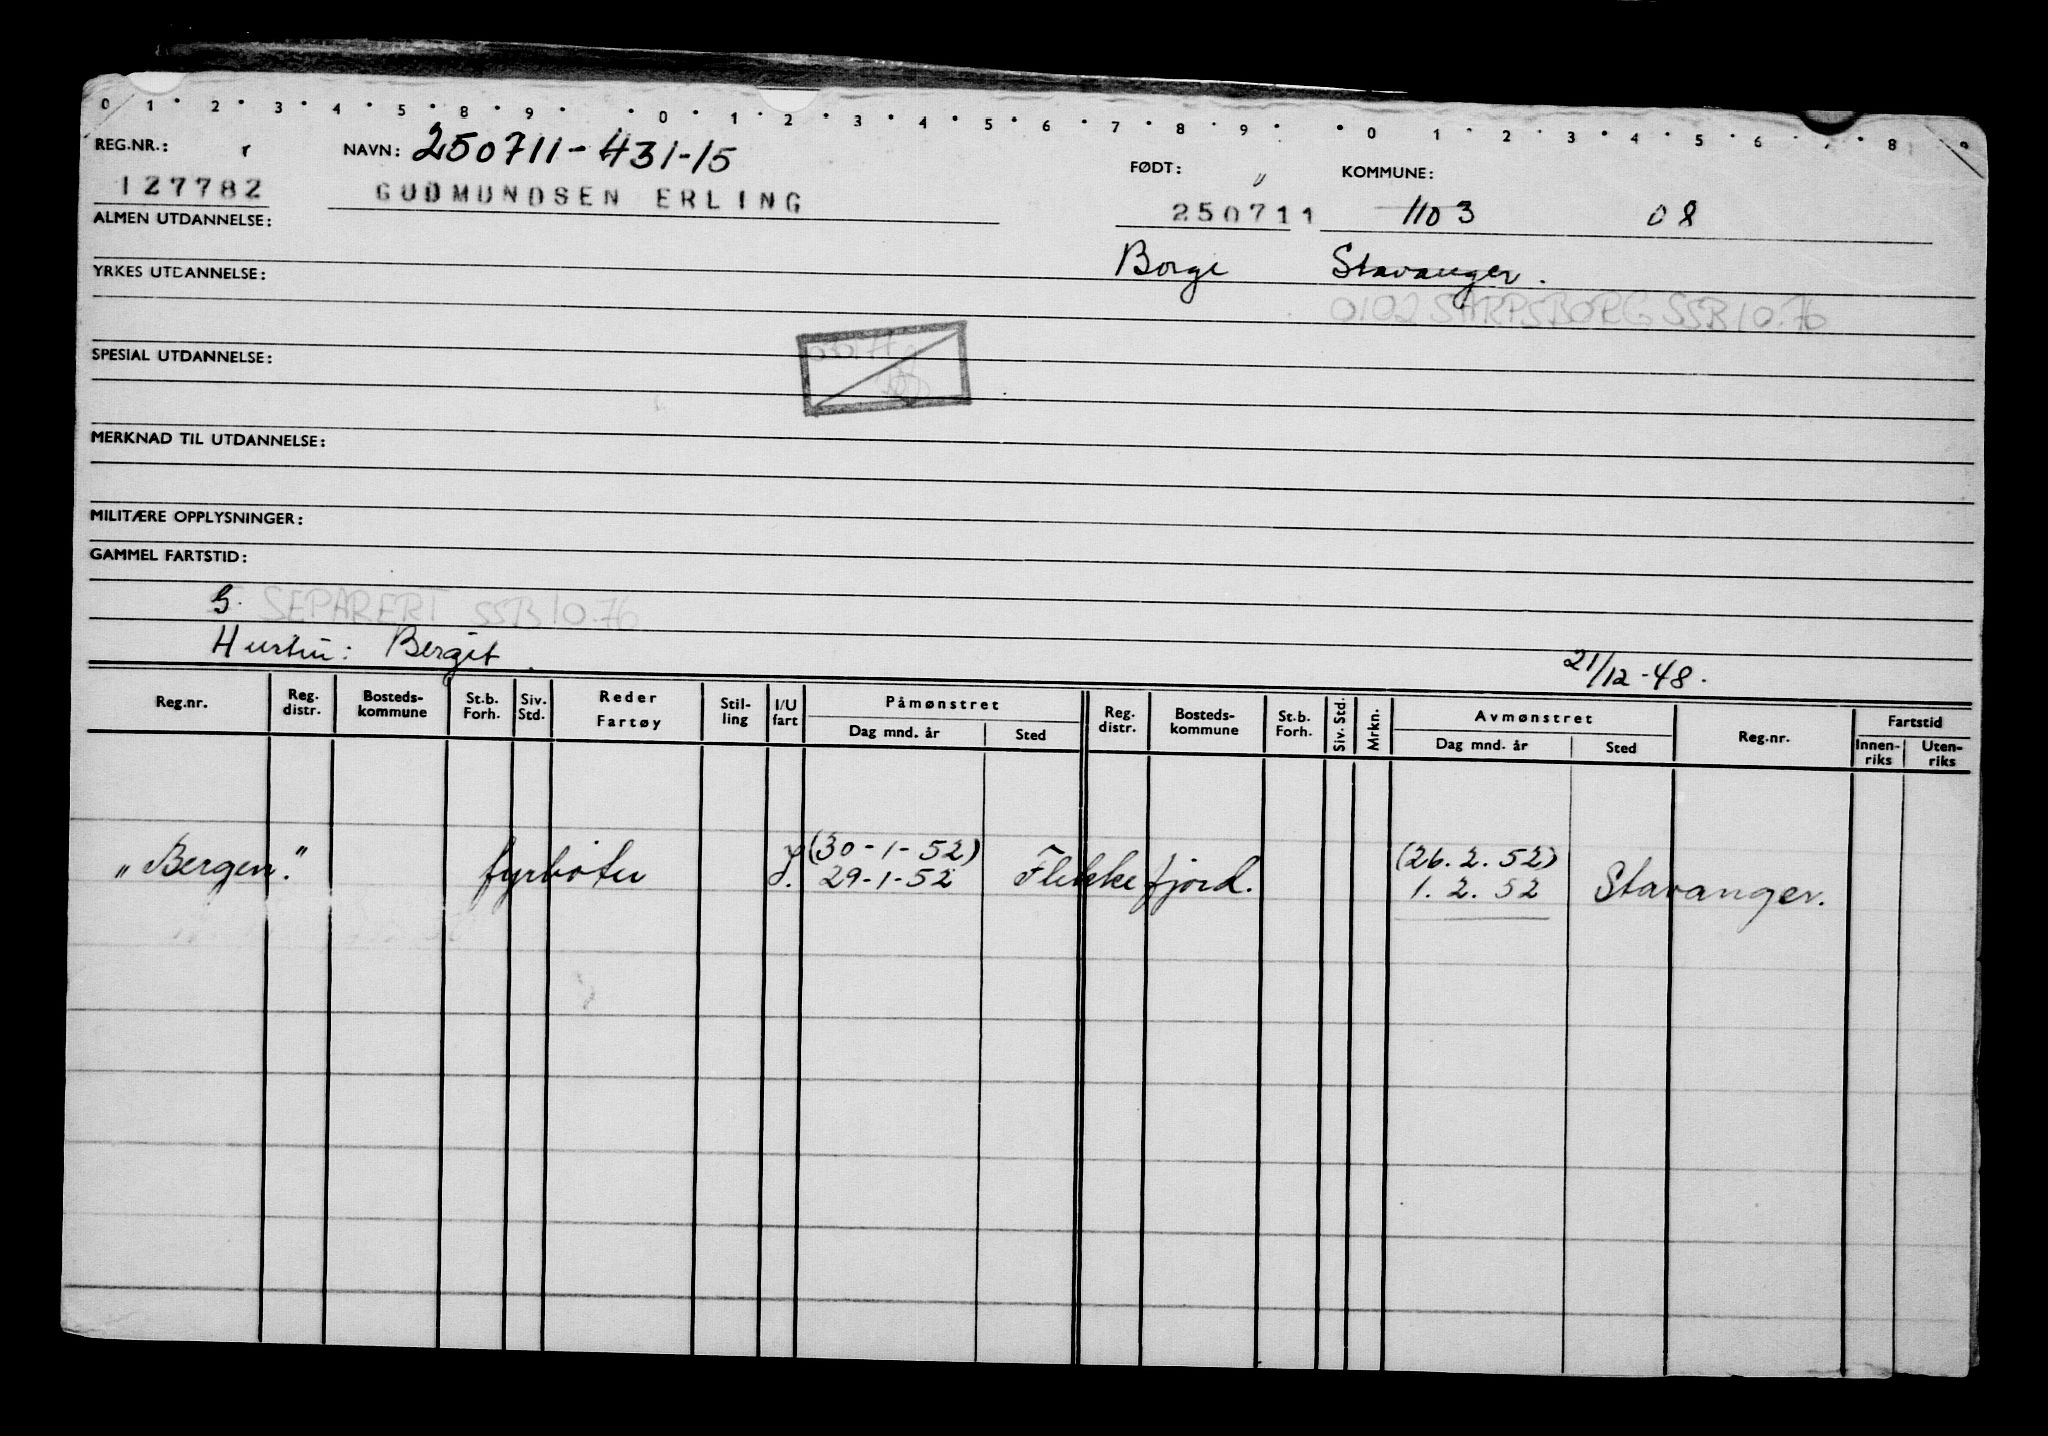 0 1 2 3 4 5 8 9 0 1 2 3 4 5 6 7 8 9 0 1 2 3 4 5 6 7 8 9
REG.NR.: NAVN: 250711-431-15 FØDT: " KOMMUNE:
127782 GUDMUNDSEN ERLING 250711 1103 08
ALMEN UTDANNELSE:
Borge Stavanger.
YRKES UTDANNELSE:
0102 SARPSBORG SSB 10.76
SPESIAL UTDANNELSE:
MERKNAD TIL UTDANNELSE:
MILITÆRE OPPLYSNINGER:
GAMMEL FARTSTID:
G. SEPARERT SSB 10.76
Hustru: Bergit. 21/12-48.
Reg.nr. Reg. distr. Bosteds-kommune St.b. Forh. Siv. Std. Reder Fartøy Stil-ling I/U fart Påmønstret Dag mnd. år Sted Reg. distr. Bosteds-kommune St.b. Forh. Siv. Std. Mrkn. Avmønstret Dag mnd. år Sted Reg.nr. Fartstid Innen-riks Uten-riks
(30-1-52) (26.2.52)
"Bergen." fyrbøter J. 29-1-52 Flekkefjord. 1.2.52 Stavanger.